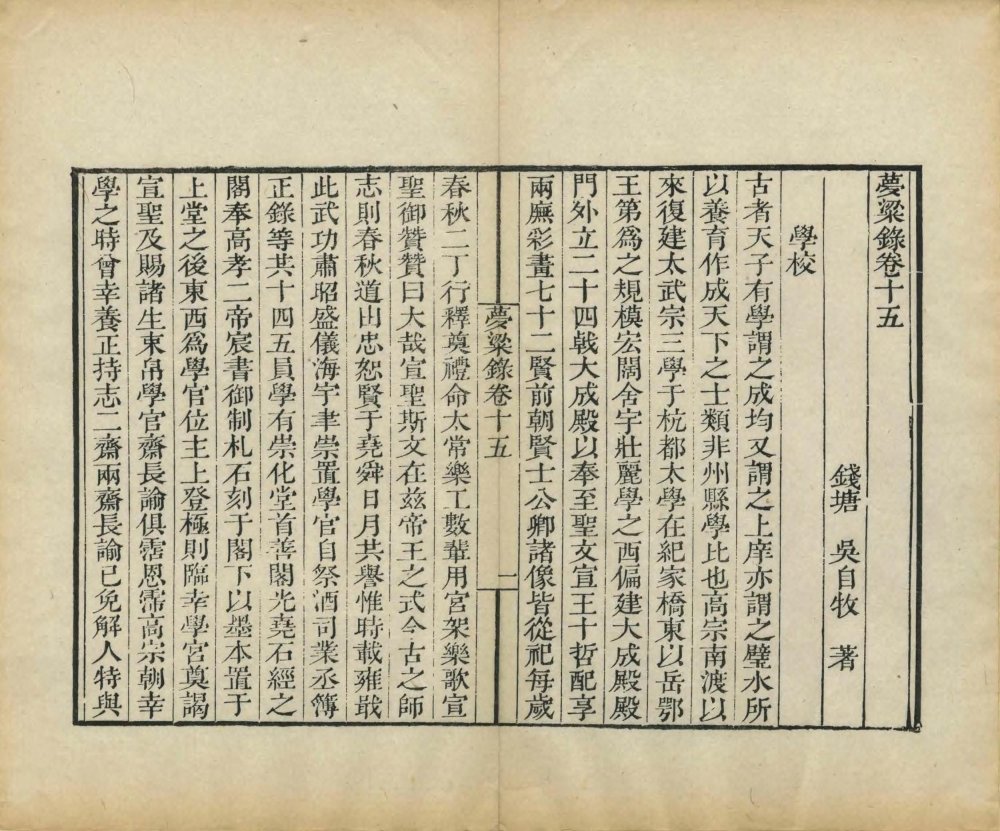 夢粱錄卷十五
錢塘 吳自牧 著
學校
古者天子有學謂之成均又謂之上庠亦謂之璧水所
以養育作成天下之士類非州縣學比也高宗南渡以
來復建太武宗三學于杭都太學在紀家橋東以岳鄂
王第爲之規模宏闊舍宇壯麗學之西偏建大成殿殿
門外立二十四戟大成殿以奉至聖文宣王十哲配享
兩廡彩畫七十二賢前朝賢士公卿諸像皆從祀每歲
夢粱錄卷十五
一
春秋二丁行釋奠禮命太常樂工數輩用宮架樂歌宣
聖御贊贊曰大哉宣聖斯文在兹帝王之式今古之師
志則春秋道由忠恕賢于堯舜日月其譽惟時載雍戢
此武功肅昭盛儀海宇聿崇置學官自祭酒司業丞簿
正錄等共十四五員學有崇化堂首善閣光堯石經之
閣奉高孝二帝宸書御制札石刻于閣下以墨本置于
上堂之後東西爲學官位主上登極則臨幸學宮奠謁
宣聖及賜諸生束帛學官齋長諭俱霑恩霈高宗朝幸
學之時曾幸養正持志二齋兩齋長諭已免解人特與